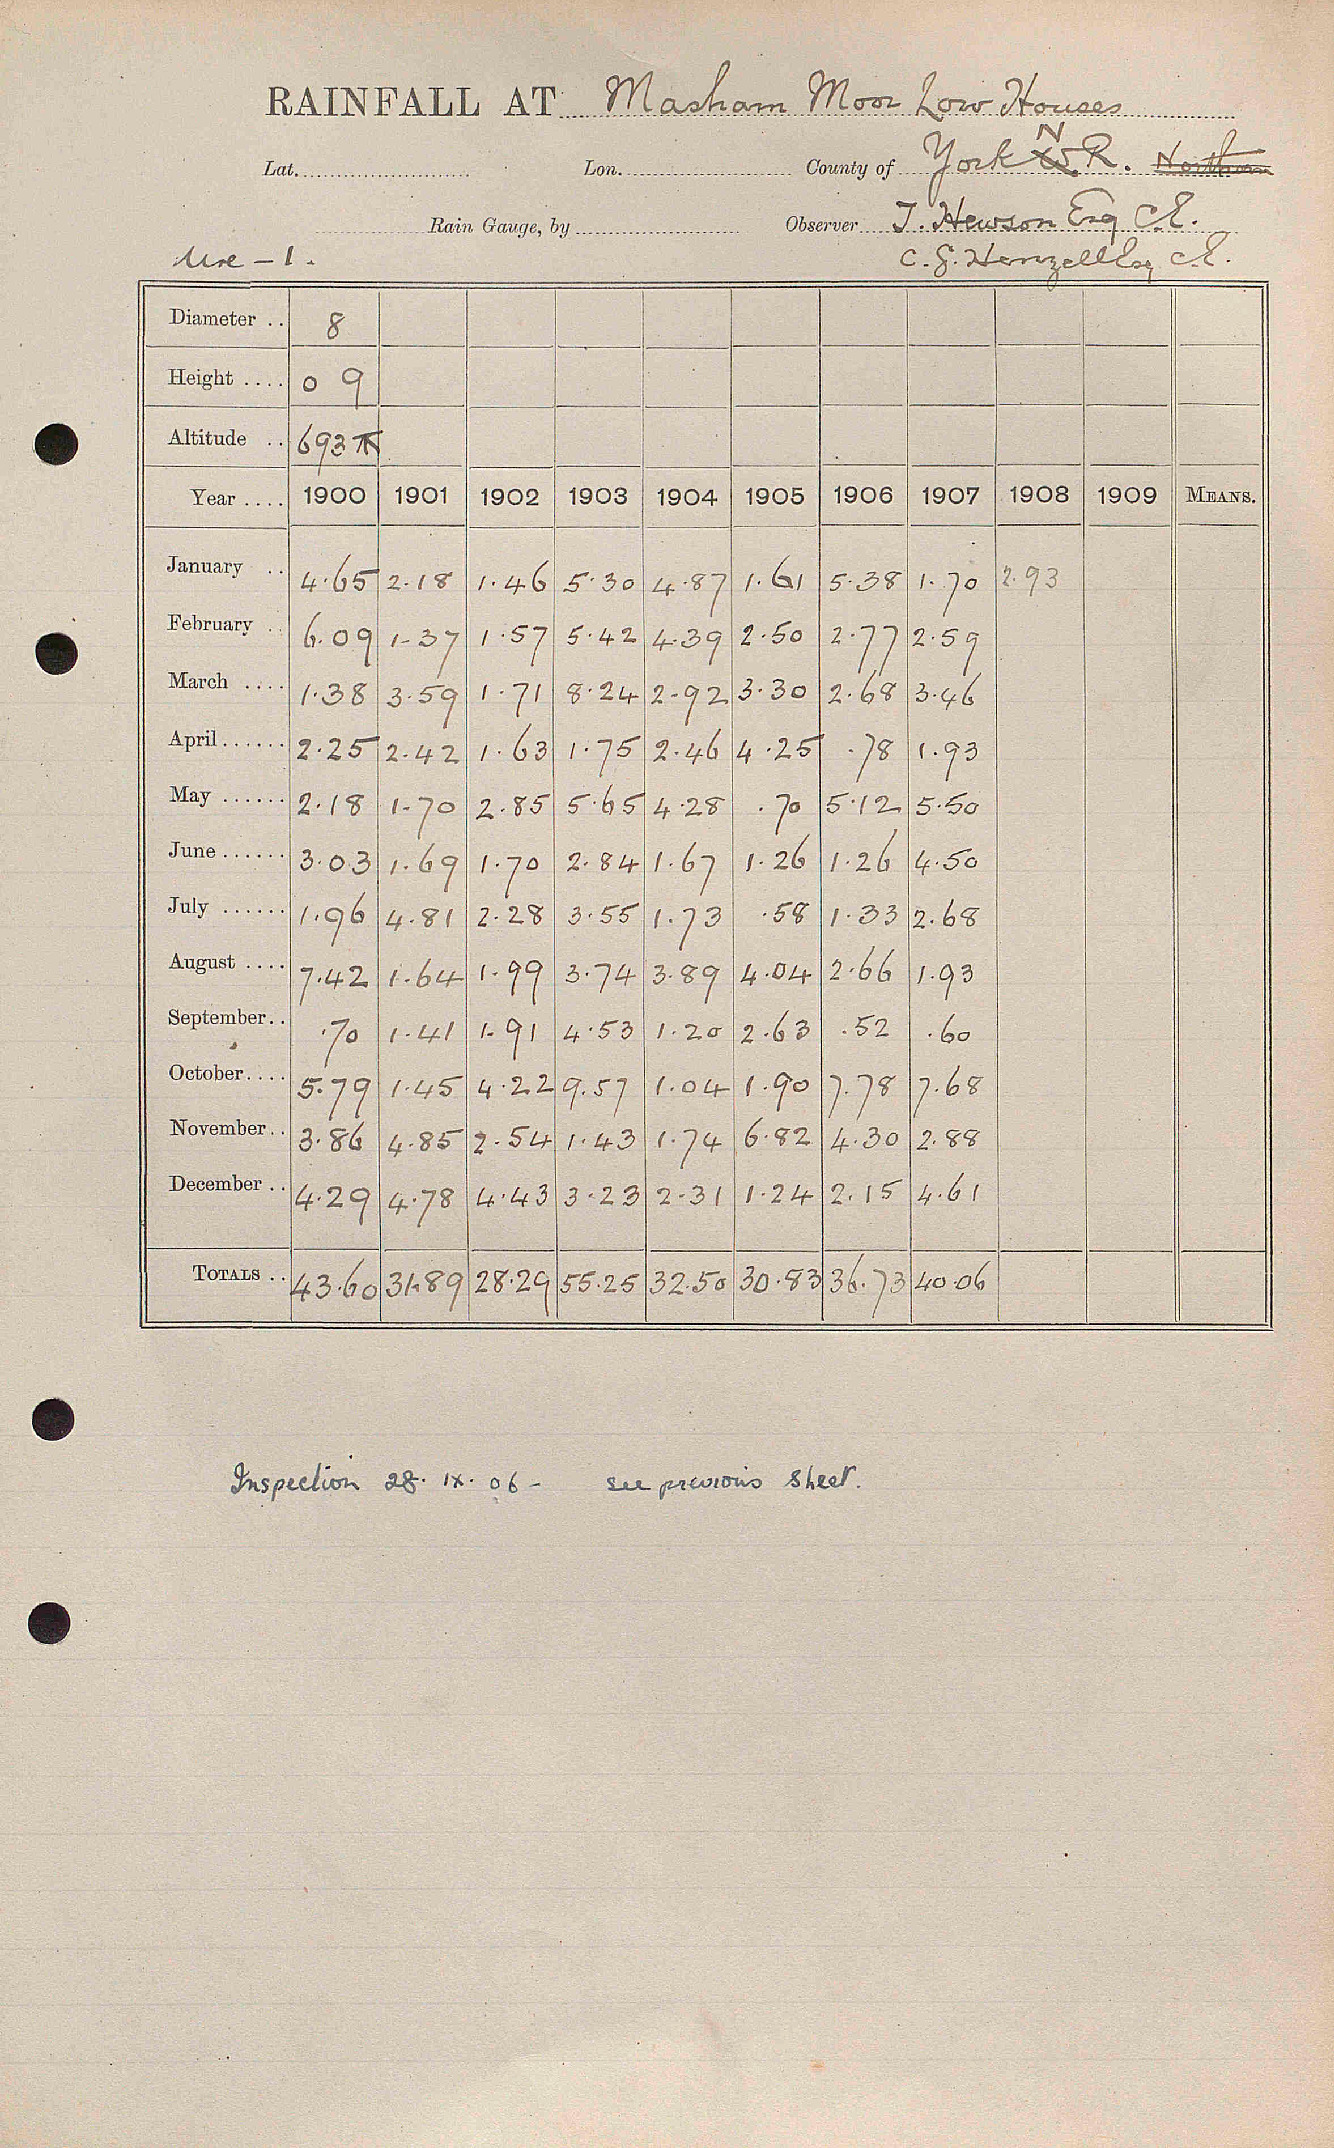 RAINFALL AT Masham Moor Low Houses
Lat. Lon. County of York N W. R. Northern
Rain Gauge, by Observer T. Hewson Esq C.E.
Ure - 1. C. G. Henzell Esq C.E.
Diameter .. 8
Height .... 0 9
Altitude .. 693
Year .... 1900 1901 1902 1903 1904 1905 1906 1907 1908 1909 MEANS.
January .. 4.65 2.18 1.46 5.30 4.87 1.61 5.38 1.70 2.93
February .. 6.09 1.37 1.57 5.42 4.39 2.50 2.77 2.59
March .... 1.38 3.59 1.71 8.24 2.92 3.30 2.68 3.46
April ...... 2.25 2.42 1.63 1.75 2.46 4.25 .78 1.93
May ...... 2.18 1.70 2.85 5.65 4.28 .70 5.12 5.50
June ...... 3.03 1.69 1.70 2.84 1.67 1.26 1.26 4.50
July ...... 1.96 4.81 2.28 3.55 1.73 .58 1.33 2.68
August .... 7.42 1.64 1.99 3.74 3.89 4.04 2.66 1.93
September .. .70 1.41 1.91 4.53 1.20 2.63 .52 .60
October .... 5.79 1.45 4.22 9.57 1.04 1.90 7.78 7.68
November .. 3.86 4.85 2.54 1.43 1.74 6.82 4.30 2.88
December .. 4.29 4.78 4.43 3.23 2.31 1.24 2.15 4.61
TOTALS .. 43.60 31.89 28.29 55.25 32.50 30.83 36.73 40.06
Inspection 28. IX. 06 - see previous sheet.